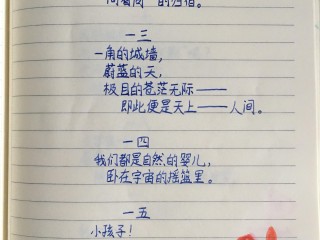 一三
一角的城墙，
蔚蓝的天，
极目的苍茫无际——
即此便是天上——人间。
一四
我们都是自然的婴儿，
卧在宇宙的摇篮里。
一五
小孩子！